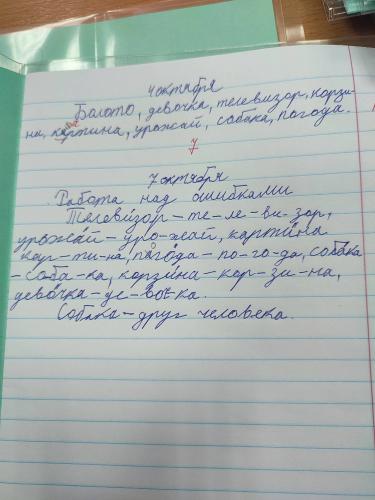 4 октября
Болото, девочка, телевизор, корзи-
на, картина, урожай, собака, погода.
7
7 октября
Работа над ошибками
Телевизор – те – ле – ви – зор,
урожай – уро – жай, картина
кар – ти – на, погода – по – го – да, собака
– соба – ка, корзина – кор – зи – на,
девочка – де – воч – ка.
Собака – друг человека.